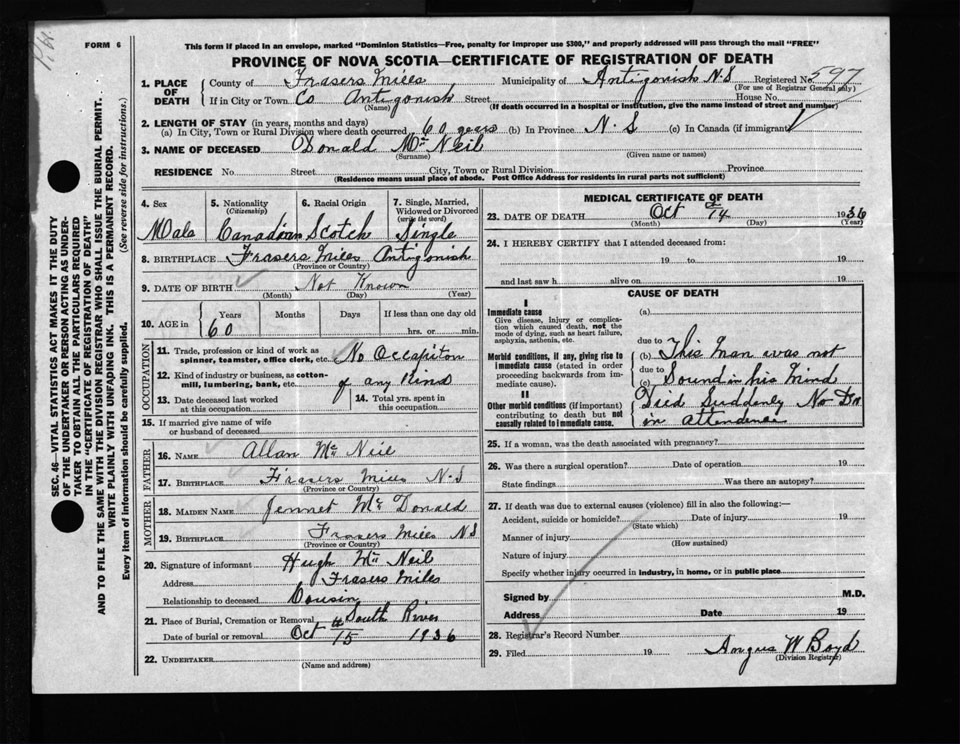 FORM 6
This form if placed in an envelope, marked "Dominion Statistics—Free, penalty for improper use $300," and properly addressed will pass through the mail "FREE"
PROVINCE OF NOVA SCOTIA—CERTIFICATE OF REGISTRATION OF DEATH
1. PLACE OF DEATH County of Frasers Mills Municipality of Antigonish N.S Registered No. 597
(For use of Registrar General only)
If in City or Town Co Antigonish Street House No.
(Name) (If death occurred in a hospital or institution, give the name instead of street and number)
2. LENGTH OF STAY (in years, months and days)
(a) In City, Town or Rural Division where death occurred 60 years (b) In Province N.S (c) In Canada (if immigrant)
3. NAME OF DECEASED Donald Mc Neil
(Surname) (Given name or names)
RESIDENCE No. Street City, Town or Rural Division Province
(Residence means usual place of abode. Post Office Address for residents in rural parts not sufficient)
4. Sex 5. Nationality (Citizenship) 6. Racial Origin 7. Single, Married, Widowed or Divorced (write the word)
Male Canadian Scotch Single
8. BIRTHPLACE Frasers Mills Antigonish
(Province or Country)
9. DATE OF BIRTH Not Known
(Month) (Day) (Year)
10. AGE in Years Months Days If less than one day
60 hrs. or min.
OCCUPATION
11. Trade, profession or kind of work as spinner, teamster, office clerk, etc. No Occapiton
12. Kind of industry or business, as cotton-mill, lumbering, bank, etc. of any Kind
13. Date deceased last worked at this occupation
14. Total yrs. spent in this occupation
15. If married give name of wife or husband of deceased
FATHER
16. NAME Allan Mc Neil
17. BIRTHPLACE Frasers Mills N.S
(Province or Country)
MOTHER
18. MAIDEN NAME Jennet Mc Donald
19. BIRTHPLACE Frasers Mills NS
(Province or Country)
20. Signature of informant Hugh Mc Neil
Address Frasers Mills
Relationship to deceased Cousin
21. Place of Burial, Cremation or Removal South River
Date of burial or removal Oct 15 1936
22. UNDERTAKER
(Name and address)
MEDICAL CERTIFICATE OF DEATH
23. DATE OF DEATH Oct 14 1936
(Month) (Day) (Year)
24. I HEREBY CERTIFY that I attended deceased from:
19 to 19
and last saw h alive on 19
CAUSE OF DEATH
I
Immediate cause (a)
Give disease, injury or complication which caused death, not the mode of dying, such as heart failure, asphyxia, asthenia, etc.
due to
Morbid conditions, if any, giving rise to immediate cause (stated in order proceeding backwards from immediate cause).
(b) This man was not
due to
(c) Sound in his mind
II
Other morbid conditions (if important) contributing to death but not causally related to immediate cause.
Died Suddenly No Dr
in attendence
25. If a woman, was the death associated with pregnancy?
26. Was there a surgical operation? Date of operation 19
State findings Was there an autopsy?
27. If death was due to external causes (violence) fill in also the following:—
Accident, suicide or homicide? Date of injury 19
(State which)
Manner of injury
(How sustained)
Nature of injury
Specify whether injury occurred in industry, in home, or in public place
Signed by M.D.
Address Date 19
28. Registrar's Record Number
29. Filed 19 Angus W Boyd
(Division Registrar)
SEC. 46—VITAL STATISTICS ACT MAKES IT THE DUTY
OF THE UNDERTAKER OR PERSON ACTING AS UNDER-
TAKER TO OBTAIN ALL THE PARTICULARS REQUIRED
IN THE "CERTIFICATE OF REGISTRATION OF DEATH"
AND TO FILE THE SAME WITH THE DIVISION REGISTRAR WHO SHALL ISSUE THE BURIAL PERMIT.
WRITE PLAINLY WITH UNFADING INK. THIS IS A PERMANENT RECORD.
Every item of information should be carefully supplied. (See reverse side for instructions.)